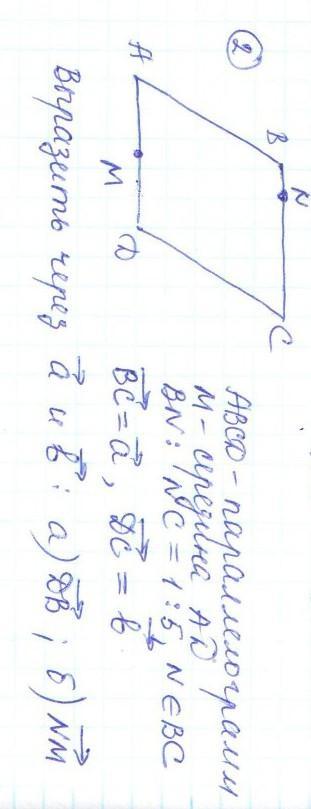 ②
B N C
A M D
ABCD - параллелограмм
M - середина AD
BN : NC = 1:5, N∈BC
BC⃗ = a⃗, DC⃗ = b⃗
Выразить через a⃗ и b⃗ : а) DB⃗ ; б) NM⃗